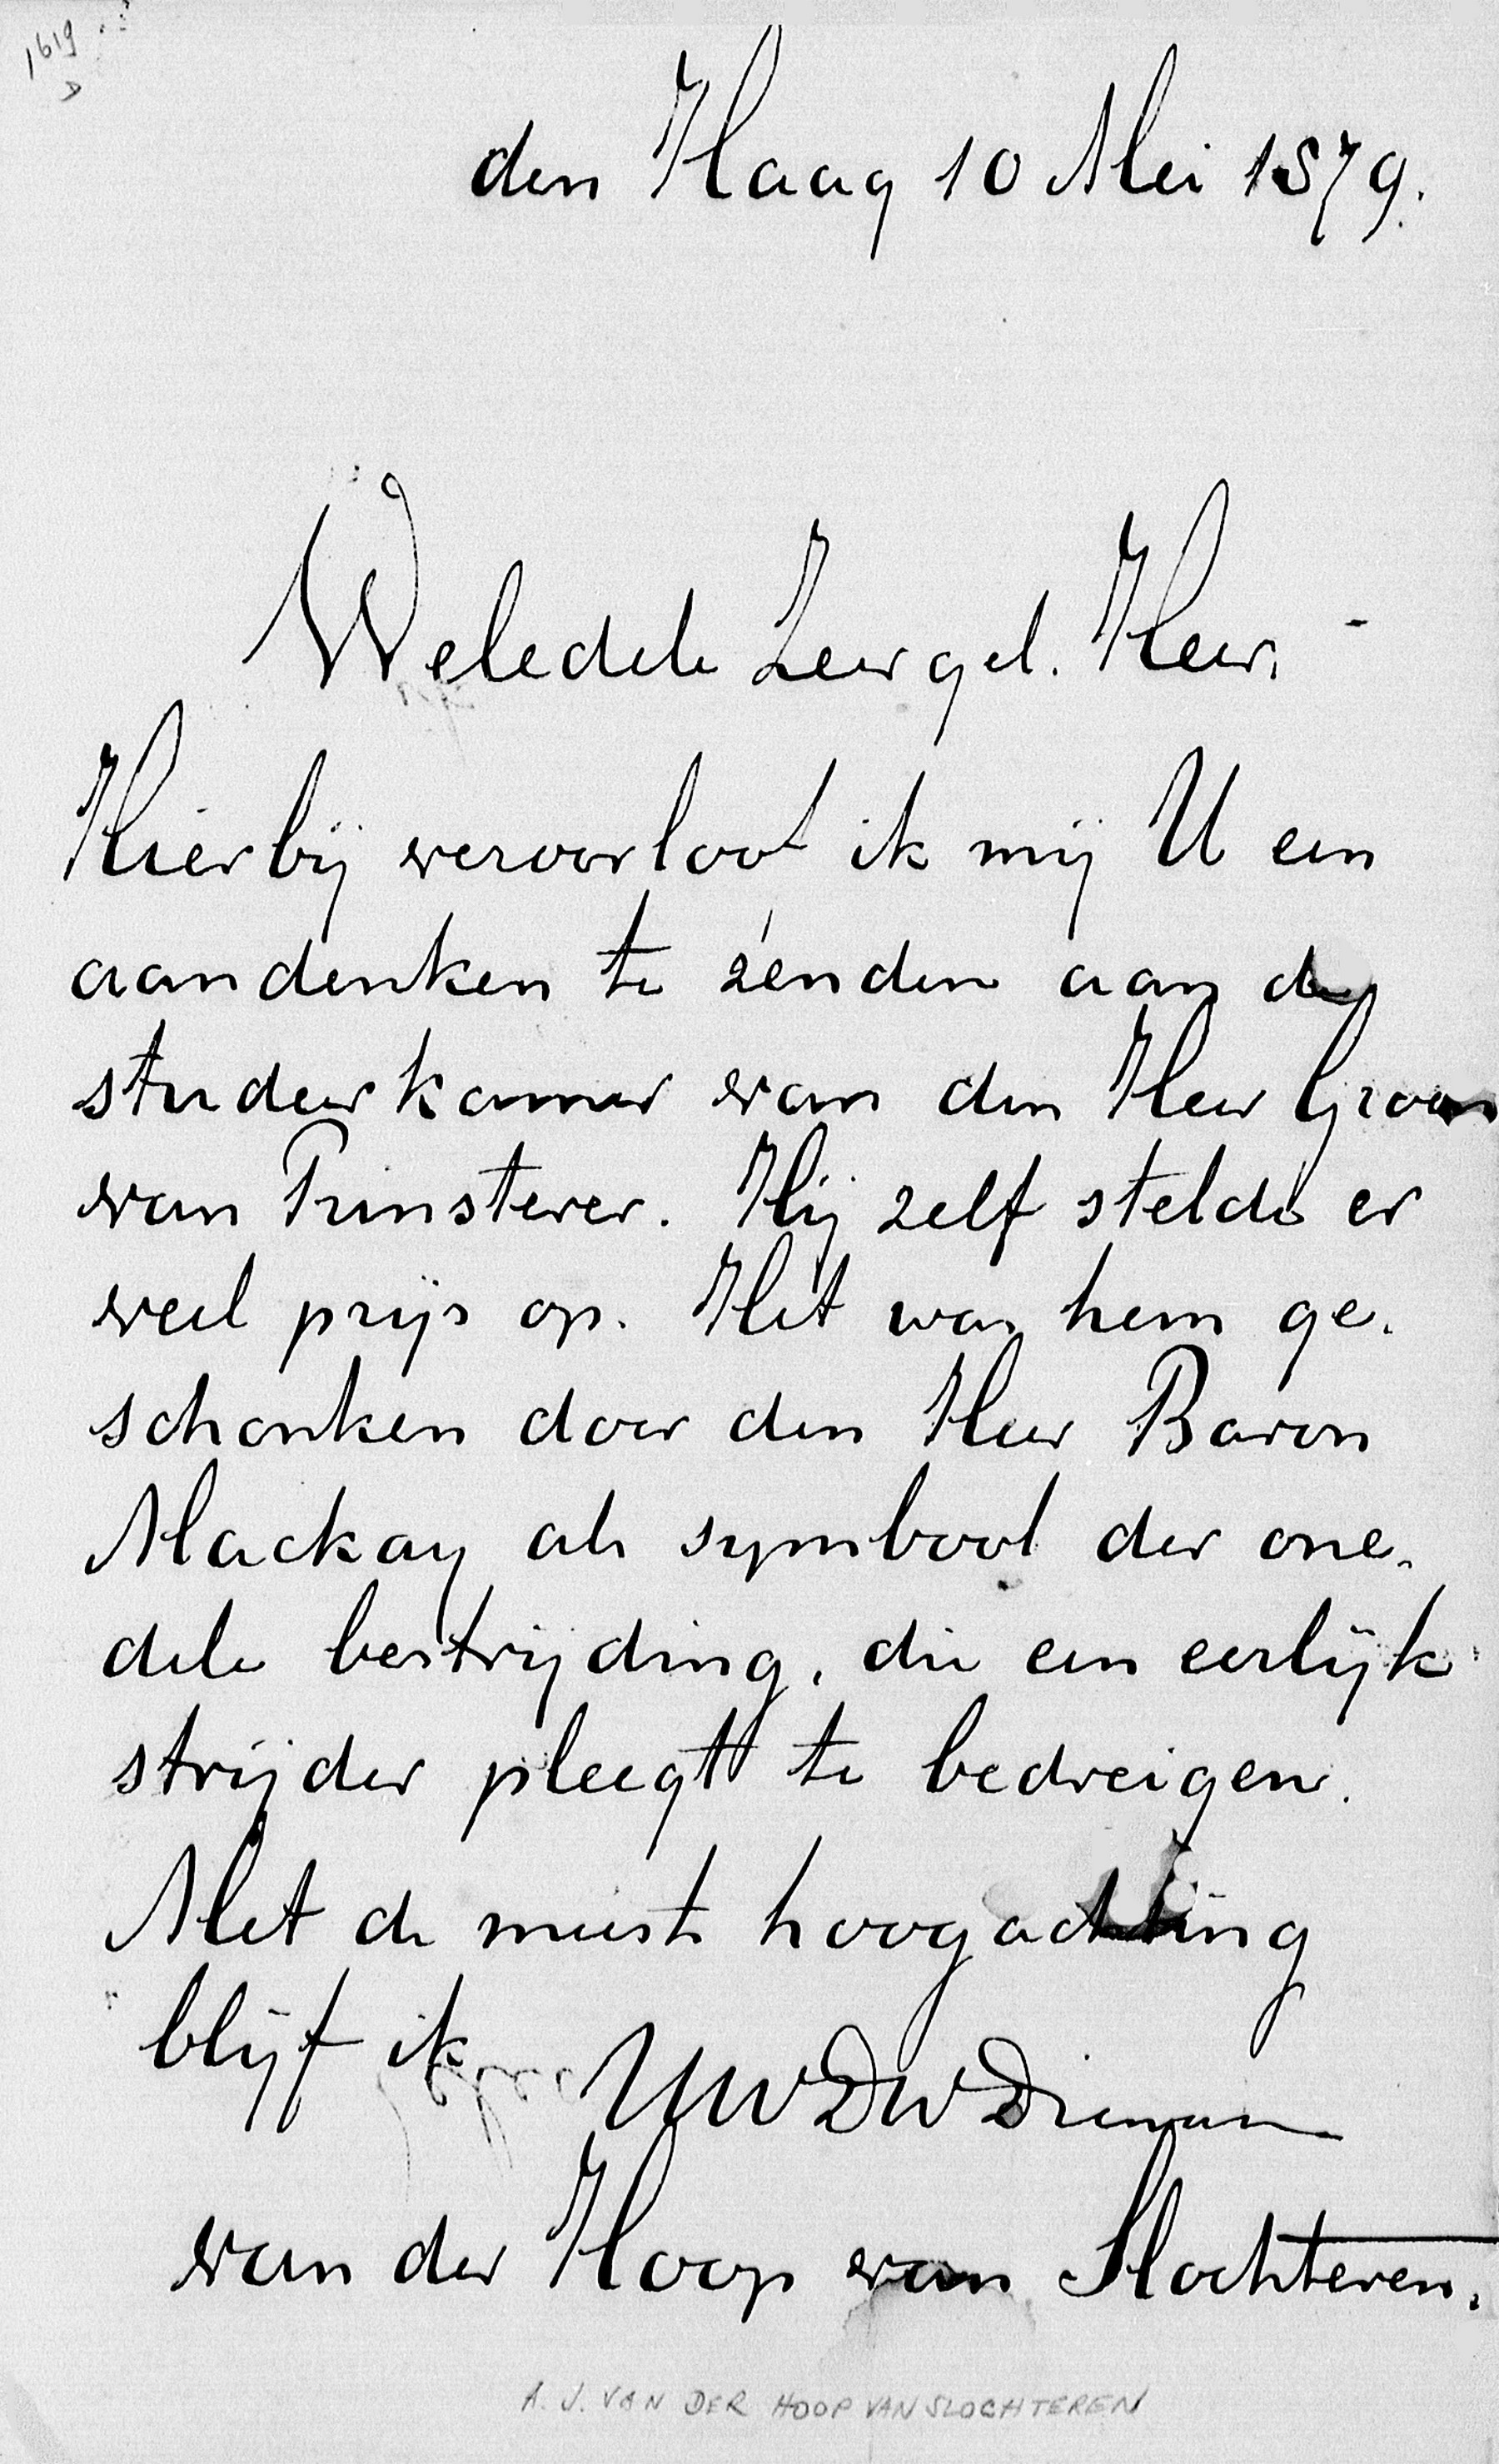 1619
den Haag 10 Mei 1879.
Weledele Zeergel. Heer,
Hierbij veroorloof ik mij U een
aandenken te zenden aan de
studeerkamer van den Heer Groen
van Prinsterer. Hij zelf stelde er
veel prijs op. Het was hem ge-
schonken door den Heer Baron
Mackay als symbool der one-
dele bestrijding, die een eerlijk
strijder pleegt te bedreigen.
Met de meeste hoogachting
blijf ik
UWDW Dienaar
van der Hoop van Slochteren.
A. J. VAN DER HOOP VAN SLOCHTEREN